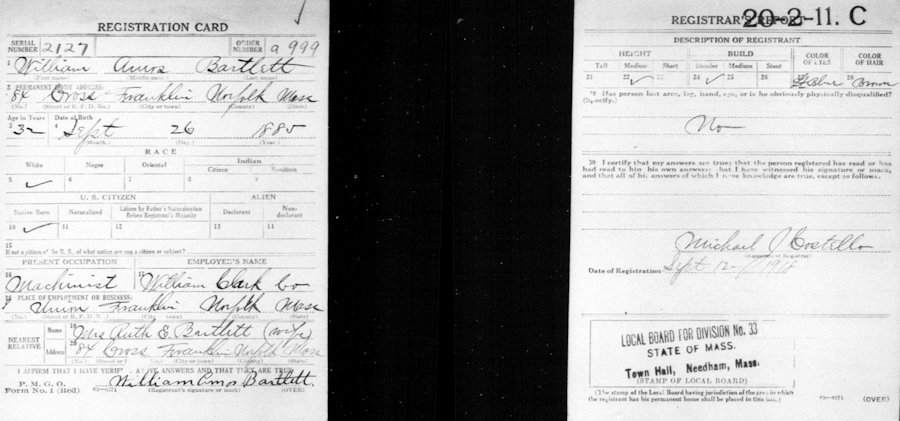 REGISTRATION CARD
SERIAL NUMBER 2127 ORDER NUMBER a 999
1 William Amos Bartlett
(First name) (Middle name) (Last name)
2 PERMANENT HOME ADDRESS:
84 Cross Franklin Norfolk Mass
(No.) (Street or R. F. D. No.) (City or town) (County) (State)
Age in Years Date of Birth
3 32 4 Sept 26 1885
(Month.) (Day.) (Year.)
RACE
White Negro Oriental Indian
Citizen Noncitizen
5 ✓ 6 7 8 9
U. S. CITIZEN ALIEN
Native Born Naturalized Citizen by Father's Naturalization Before Registrant's Majority Declarant Non-declarant
10 ✓ 11 12 13 14
15
If not a citizen of the U. S., of what nation are you a citizen or subject?
PRESENT OCCUPATION EMPLOYER'S NAME
16 Machinist 17 William Clark Co
18 PLACE OF EMPLOYMENT OR BUSINESS:
Union Franklin Norfolk Mass
(No.) (City or town) (County) (State)
NEAREST RELATIVE Name 19 Mrs Ruth E Bartlett (wife)
Address 20 84 Cross Franklin Norfolk Mass
(No.) (City or town) (County) (State)
I AFFIRM THAT I HAVE VERIFIED ABOVE ANSWERS AND THAT THEY ARE TRUE
P. M. G. O.
Form No. 1 (Red) William Amos Bartlett
(Registrant's signature or mark) (OVER)
REGISTRAR'S REPORT 20-2-11. C
DESCRIPTION OF REGISTRANT
HEIGHT BUILD COLOR OF EYES COLOR OF HAIR
Tall Medium Short Slender Medium Stout
21 22 ✓ 23 24 ✓ 25 26 Blue 28 Brown
29 Has person lost arm, leg, hand, eye, or is he obviously physically disqualified?
(Specify.)
No
30 I certify that my answers are true; that the person registered has read or has
had read to him his own answers; that I have witnessed his signature or mark,
and that all of his answers of which I have knowledge are true, except as follows.
Michael J Costello
(Signature of Registrar)
Date of Registration Sept 12 - 1918
LOCAL BOARD FOR DIVISION No. 33
STATE OF MASS.
Town Hall, Needham, Mass.
(STAMP OF LOCAL BOARD)
(The stamp of the Local Board having jurisdiction of the area in which
the registrant has his permanent home shall be placed in this box.)
(OVER)